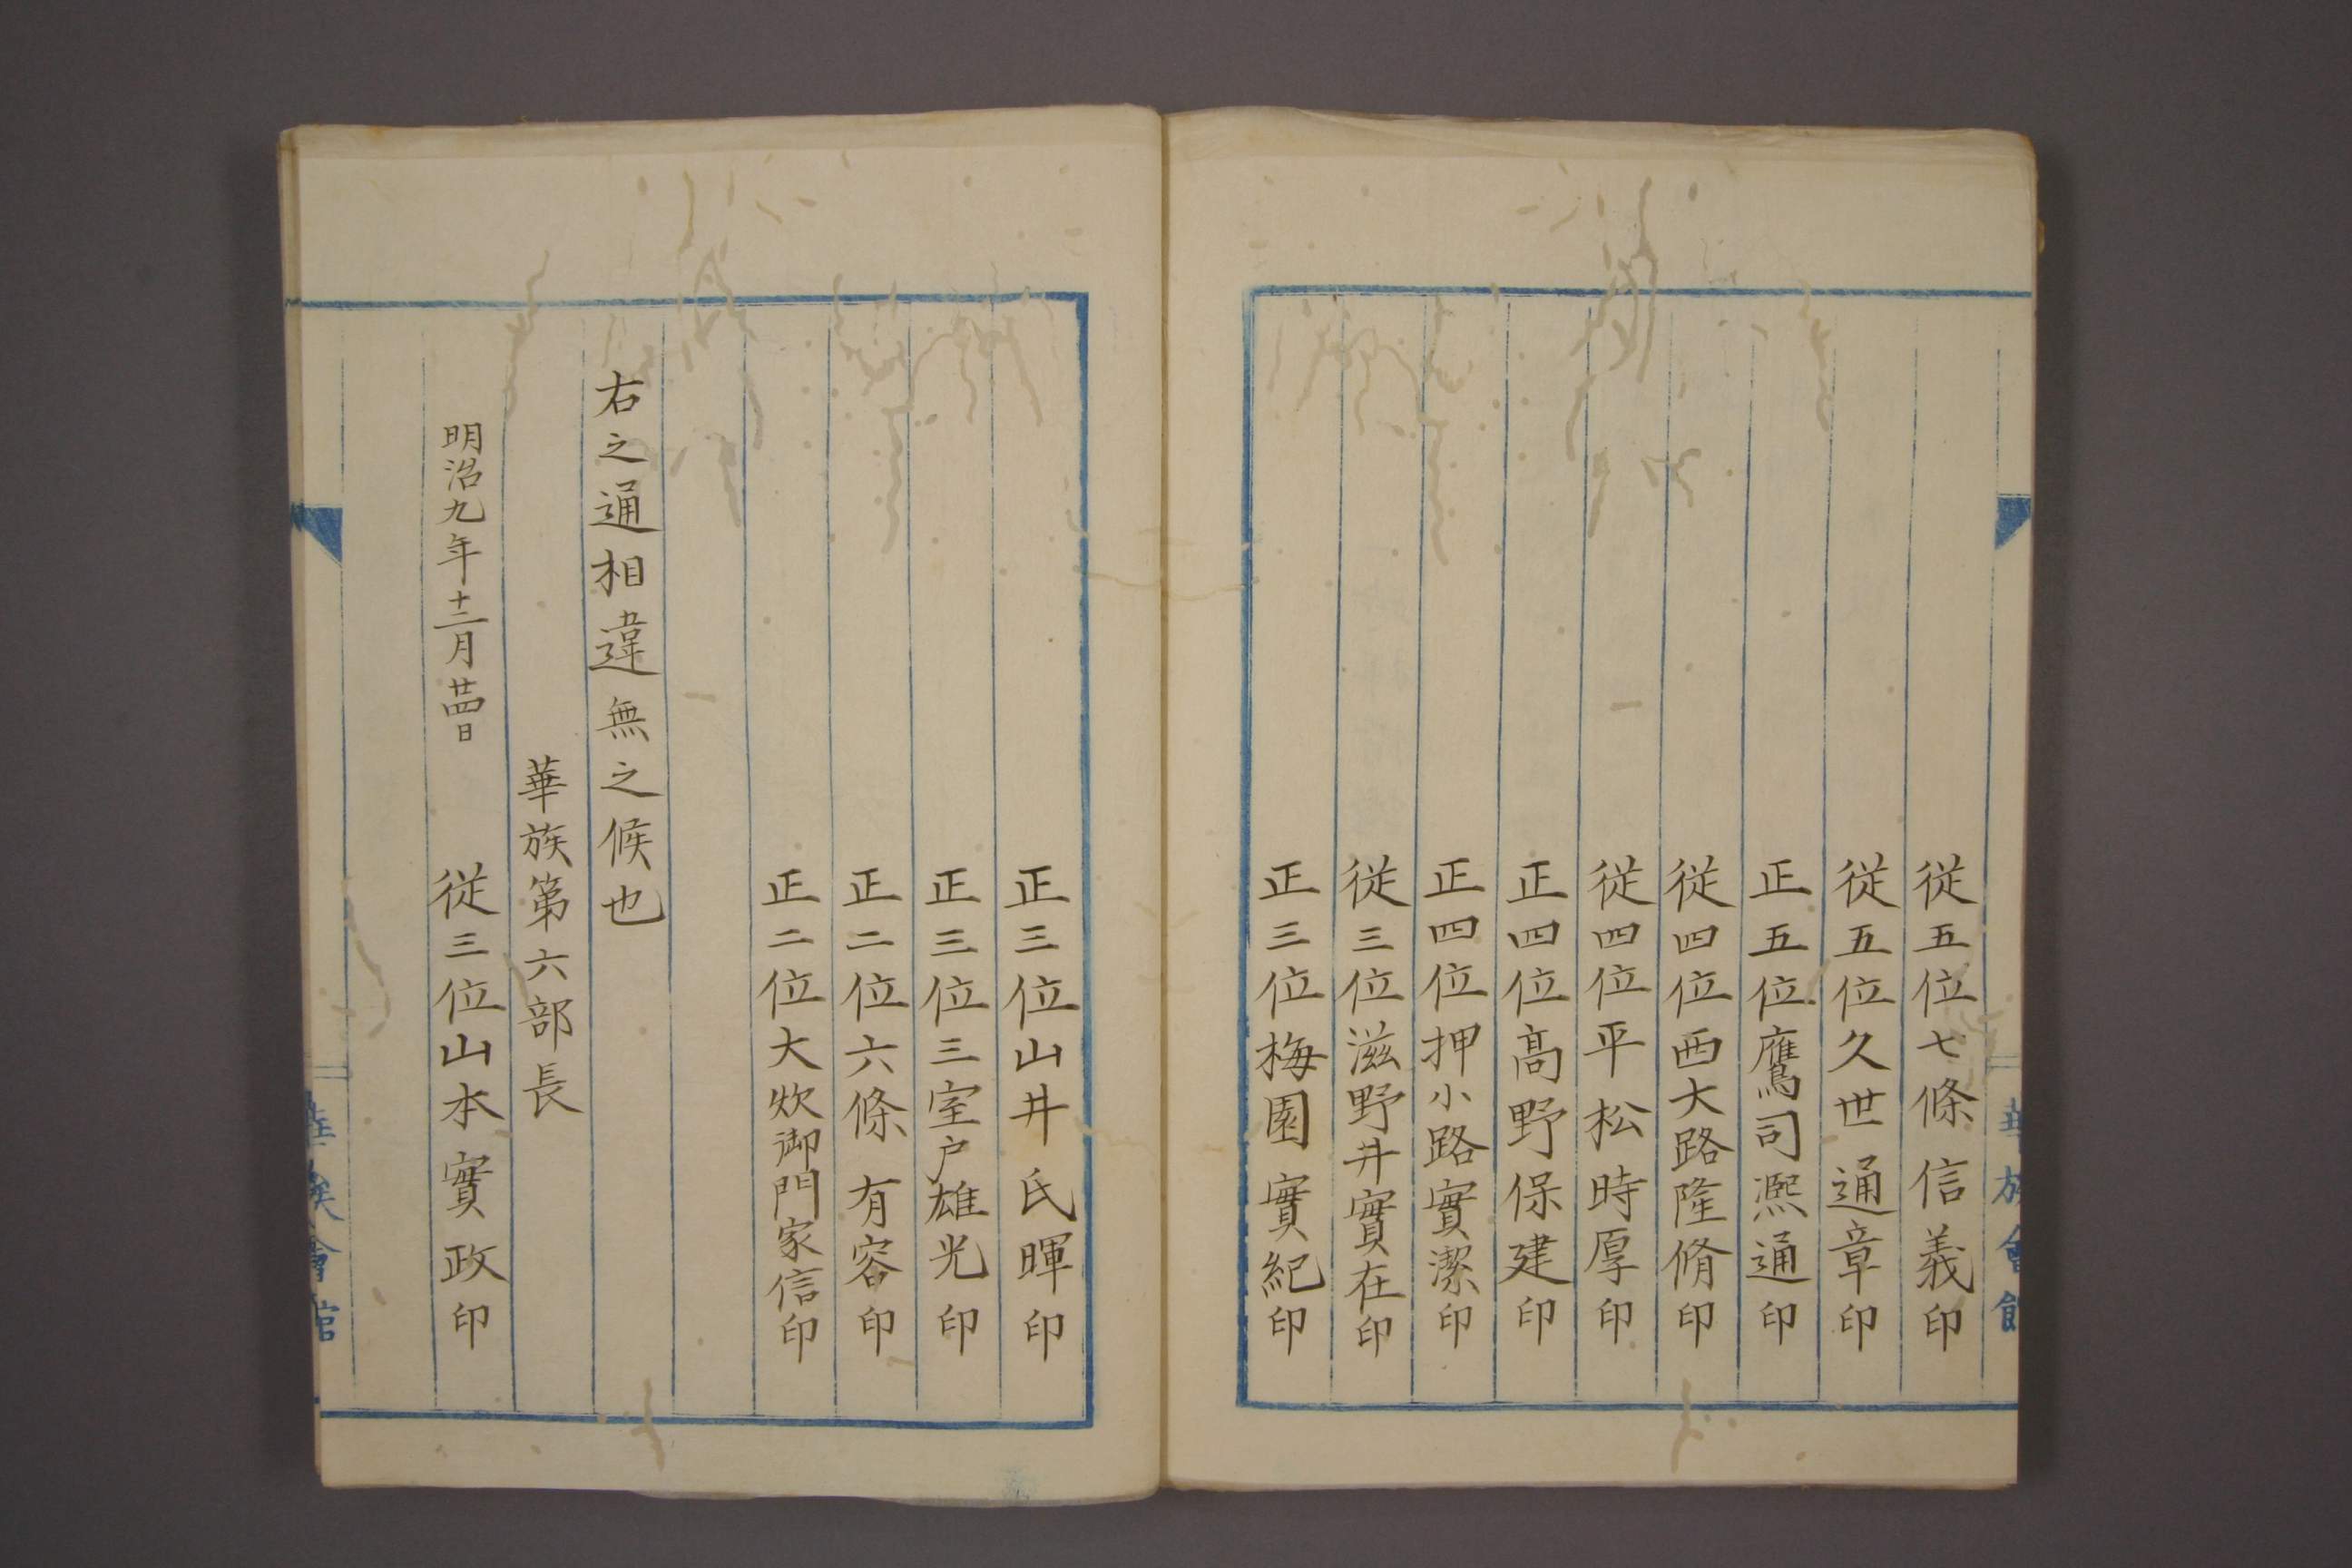 従五位七條信義印
従五位久世通章印
正五位鷹司熈通印
従四位西大路隆脩印
従四位平松時厚印
正四位髙野保建印
正四位押小路實潔印
従三位滋野井實在印
正三位梅園實紀印
正三位山井氏暉印
正三位三室户雄光印
正二位六條有容印
正二位大炊御門家信印
右之通相違無之候也
華族第六部長
明治九年十二月廿四日 従三位山本實政印
華族會館
華族會館